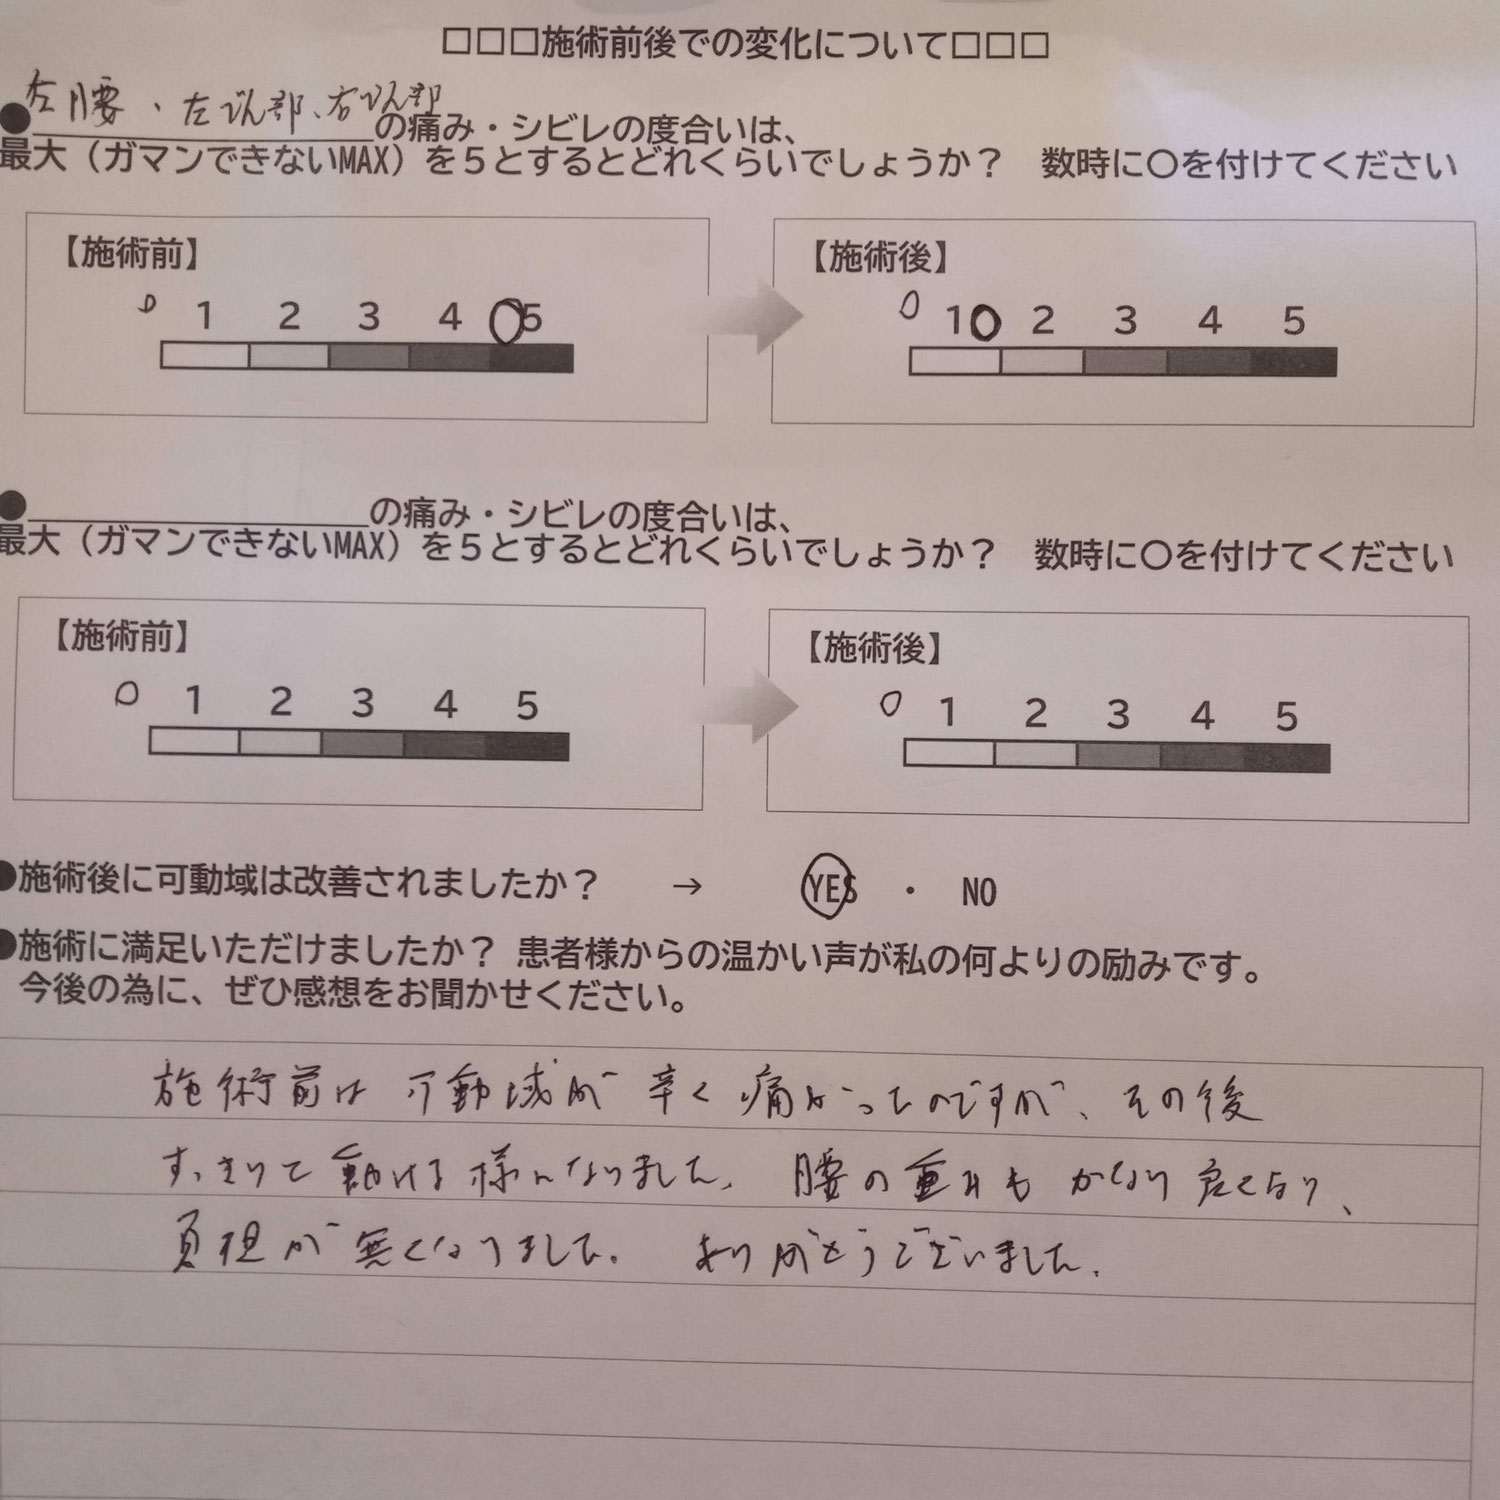 □□□施術前後での変化について□□□
●左腰、左でん部、右でん部の痛み・シビレの度合いは、
最大（ガマンできないMAX）を５とするとどれくらいでしょうか？ 数時に〇を付けてください
【施術前】
0 1 2 3 4 5
【施術後】
0 1 2 3 4 5
●の痛み・シビレの度合いは、
最大（ガマンできないMAX）を５とするとどれくらいでしょうか？ 数時に〇を付けてください
【施術前】
0 1 2 3 4 5
【施術後】
0 1 2 3 4 5
●施術後に可動域は改善されましたか？ → YES ・ NO
●施術に満足いただけましたか？ 患者様からの温かい声が私の何よりの励みです。
今後の為に、ぜひ感想をお聞かせください。
施術前は可動域が辛く痛かったのですが、その後
すっきりと動ける様になりました。腰の重みもかなり良くなり、
負担が無くなりました。ありがとうございました。